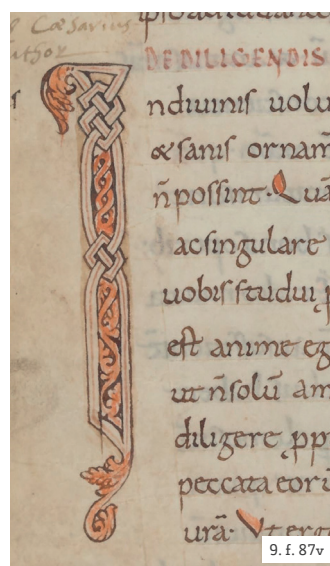 Cæsarius
uthor
DE DILIGENDIS
I
ndiuinis uolu
&sanis ornam
n̄possint· Quā
acsingulare
uobisstudui
est anime eg
ut n̄solū am
diligere ꝓp
peccata eorū
urā· Vt erg
9. f. 87v